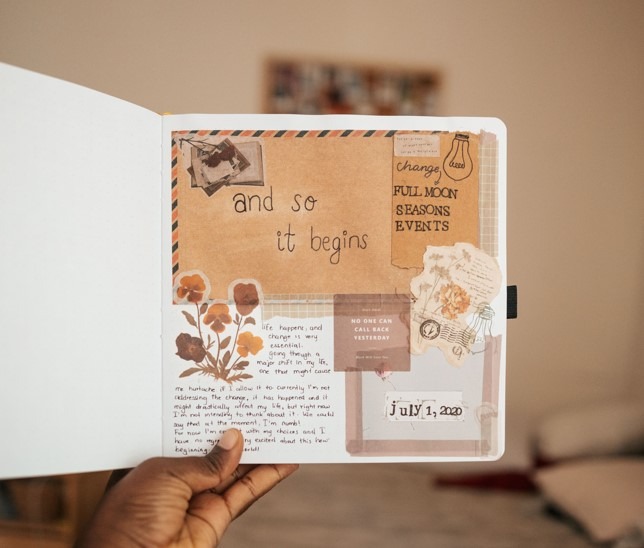 and so
it begins
change,
FULL MOON
SEASONS
EVENTS
NO ONE CAN
CALL BACK
YESTERDAY
life happens, and
change is very
essential.
going through a
major shift in my life,
one that might cause
me heartache if I allow it to currently I'm not
addressing the change, it has happened and it
might drastically affect my life, but right now
I'm not intending to think about it. We could
say that at the moment, I'm numb!
For now I'm with my choices and I
have no excited about this new
beginning world!
july 1, 2020